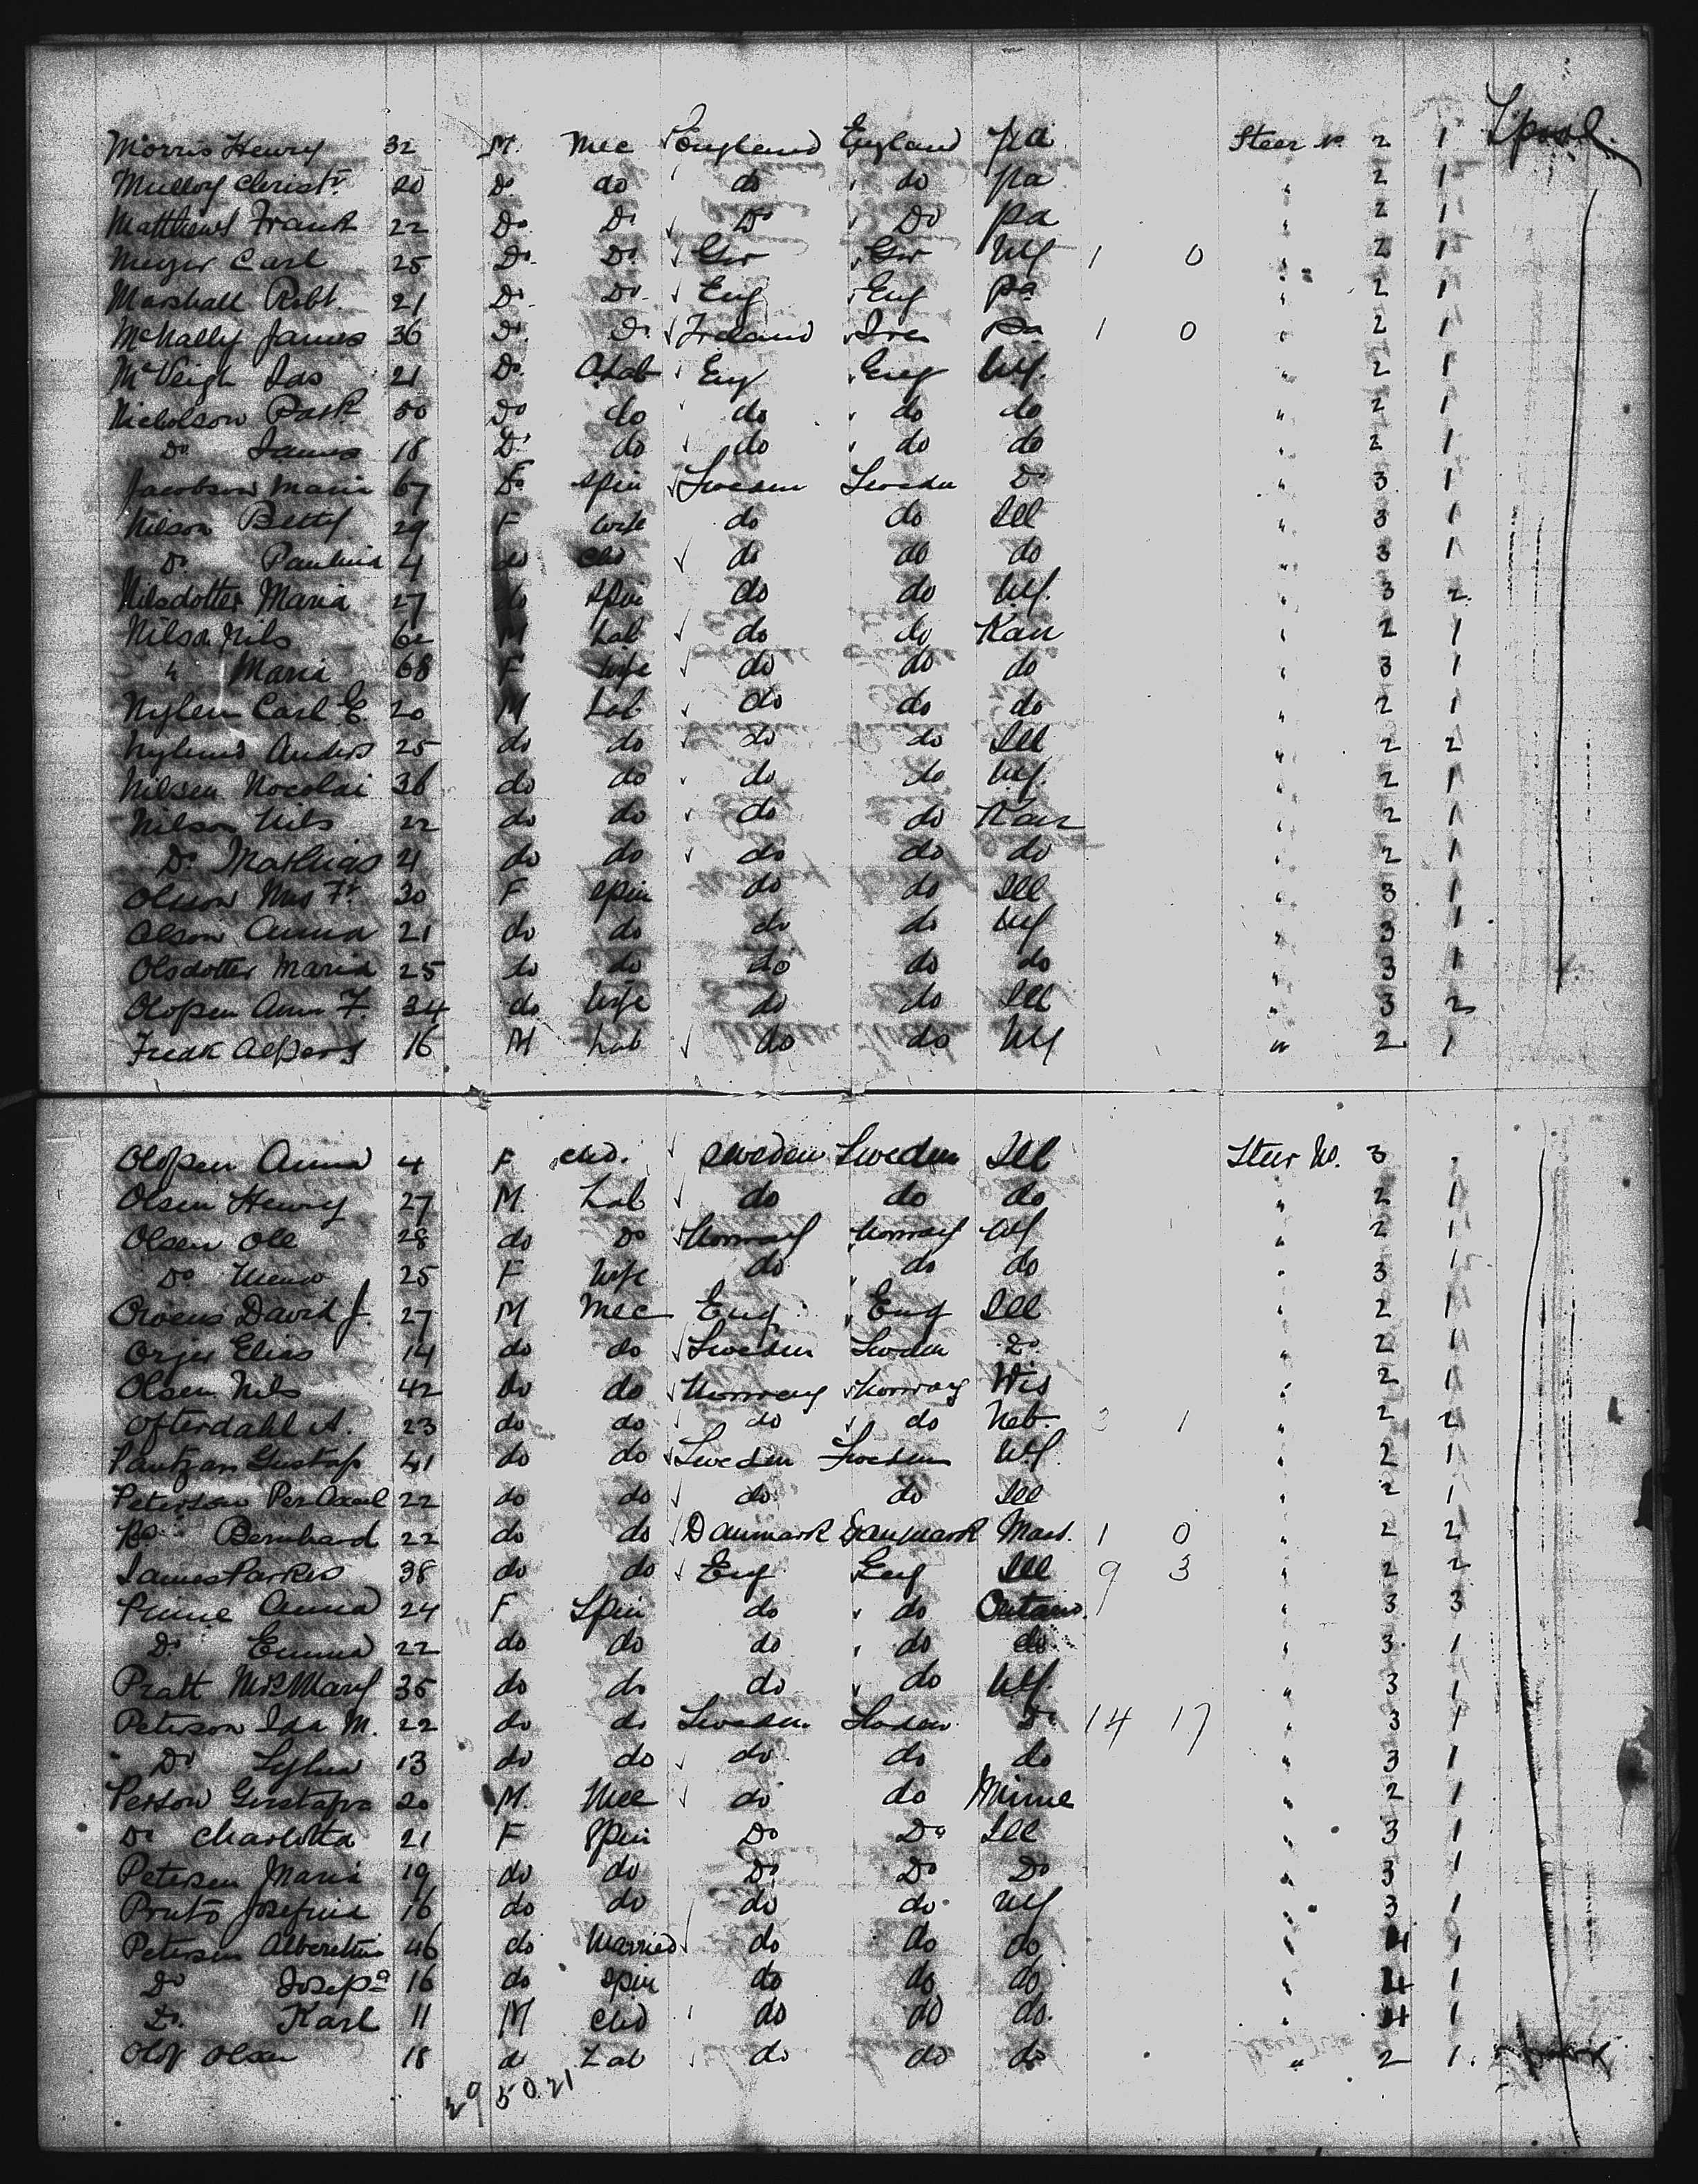 Morris Henry 32 M. Mec England England Pa Steer No 2 1 Lpool.
Mulloy Christr 20 Do. do do do Pa " 2 1
Matthews Frank 22 Do. Do Do Do Pa " 2 1
Meyer Carl 25 Do. Do. Ger Ger NY 1 0 " 2 1
Marshall Robt. 21 Do. Do. Eng Eng Pa " 2 1
McNally James 36 Do. Do. Ireland Ire Pa 1 0 " 2 1
McVeigh Jas 21 Do. Eng Eng NY. " 2 1
Nicholson Patk 50 Do do do do do " 2 1
Do James 18 Do do do do do " 2 1
Jacobson Maria 67 F Spin Sweden Sweden Do " 3 1
Nilson Betty 29 F wife do do Ill " 3 1
Do Paulina 4 do chd do do do " 3 1
Nilsdotter Maria 27 do Spin do do NY. " 3 2
Nilson Nils 62 M Lab do do Kan " 2 1
" Maria 68 F wife do do do " 3 1
Nylen Carl E. 20 M Lab do do do " 2 1
Nylund Anders 25 do do do do Ill " 2 2
Nilsen Nocolai 36 do do do do NY. " 2 1
Nilson Nils 22 do do do do Kan " 2 1
Do. Mathias 21 do do do do do " 2 1
Olsson Mrs 30 F Spin do do Ill " 3 1
Olson Anna 21 do do do do NY " 3 1
Olsdotter Maria 25 do do do do do " 3 1
Olofsen Ann F. 34 do wife do do Ill " 3 2
Fredk Alpers 16 M Lab do do NY " 2 1
Olofsen Anna 4 F chd. Sweden Sweden Ill Steer No. 3
Olsen Henry 27 M. Lab do do do " 2 1
Olsen Ole 28 do Do Norway Norway NY " 2 1
Do 25 F Wife do do do " 3 1
Owens David J. 27 M Mec Eng. Eng Ill " 2 1
Elias 14 do do Sweden Sweden Do " 2 1
Olsen Nils 42 do do Norway Norway Wis " 2 1
Ofterdahl A. 23 do do do do Neb. 3 1 " 2 2
Pantzar Gustaf 41 do do Sweden Sweden NY. " 2 1
Peterson Per Axel 22 do do do do Ill " 2 1
Do Bernhard 22 do do Danmark Danmark Mass. 1 0 " 2 2
James Parkes 38 do do Eng Eng Ill 9 3 " 2 2
Anna 24 F Spin do do Ontario. " 3 3
Do. Emma 22 do do do do do " 3 1
Pratt Mrs Mary 35 do do do do NY. " 3 1
Peterson Ida M. 22 do do Sweden Sweden Do 14 17 " 3 1
Do 13 do do do do do " 3 1
Person Gustafva 20 M. Mec do do Minne " 2 1
Do Charlotta 21 F Spin Do Do Ill " 3 1
Petersen Maria 19 do do Do. Do Do " 3 1
Josefina 16 do do do do NY " 3 1
Petersen 46 do Married do do do " 4 1
Do Josepa 16 do Spin do do do " 4 1
Do. Karl 11 M chd do do do. " 4 1
Olof Olsen 18 d Lab do do do " 2 1.
29 50.21